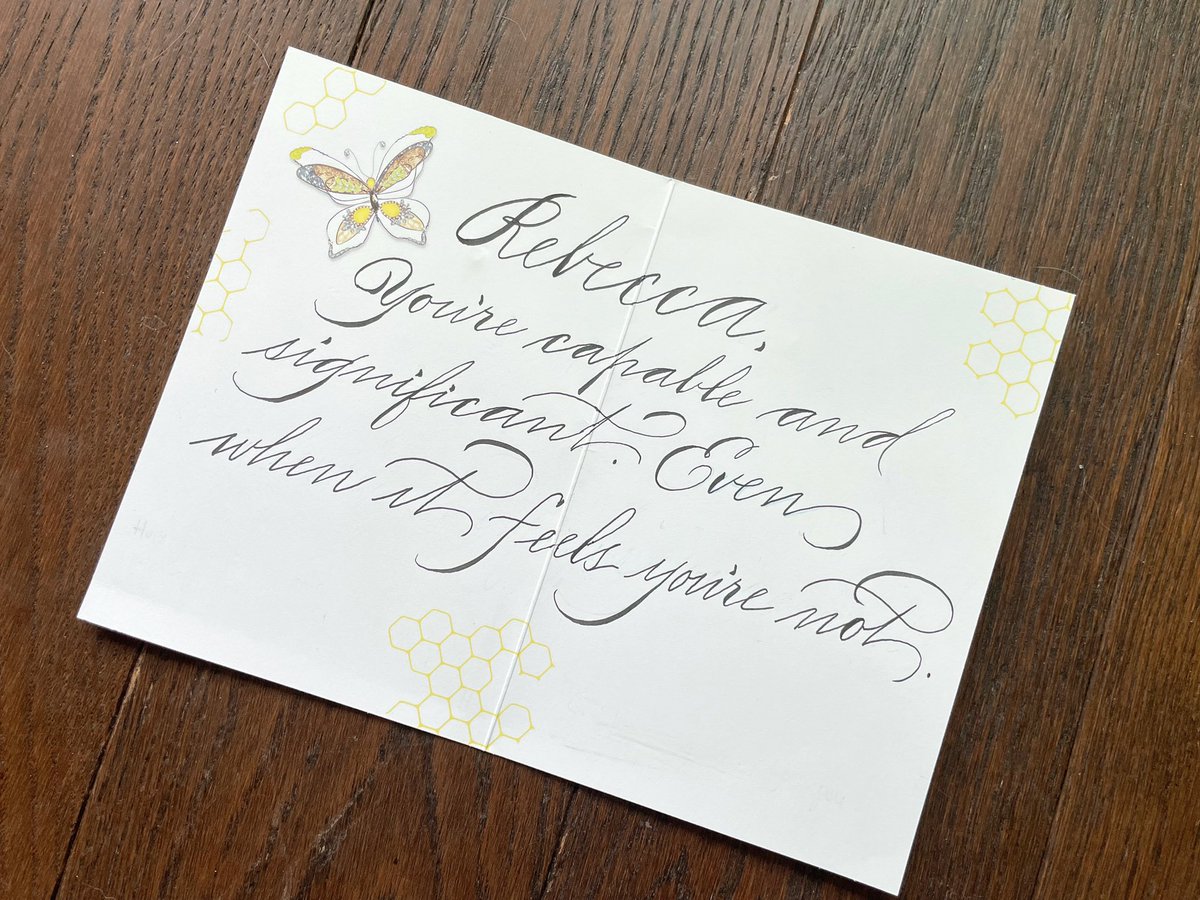 Rebecca,
You're capable and
significant. Even
when it feels you're not.